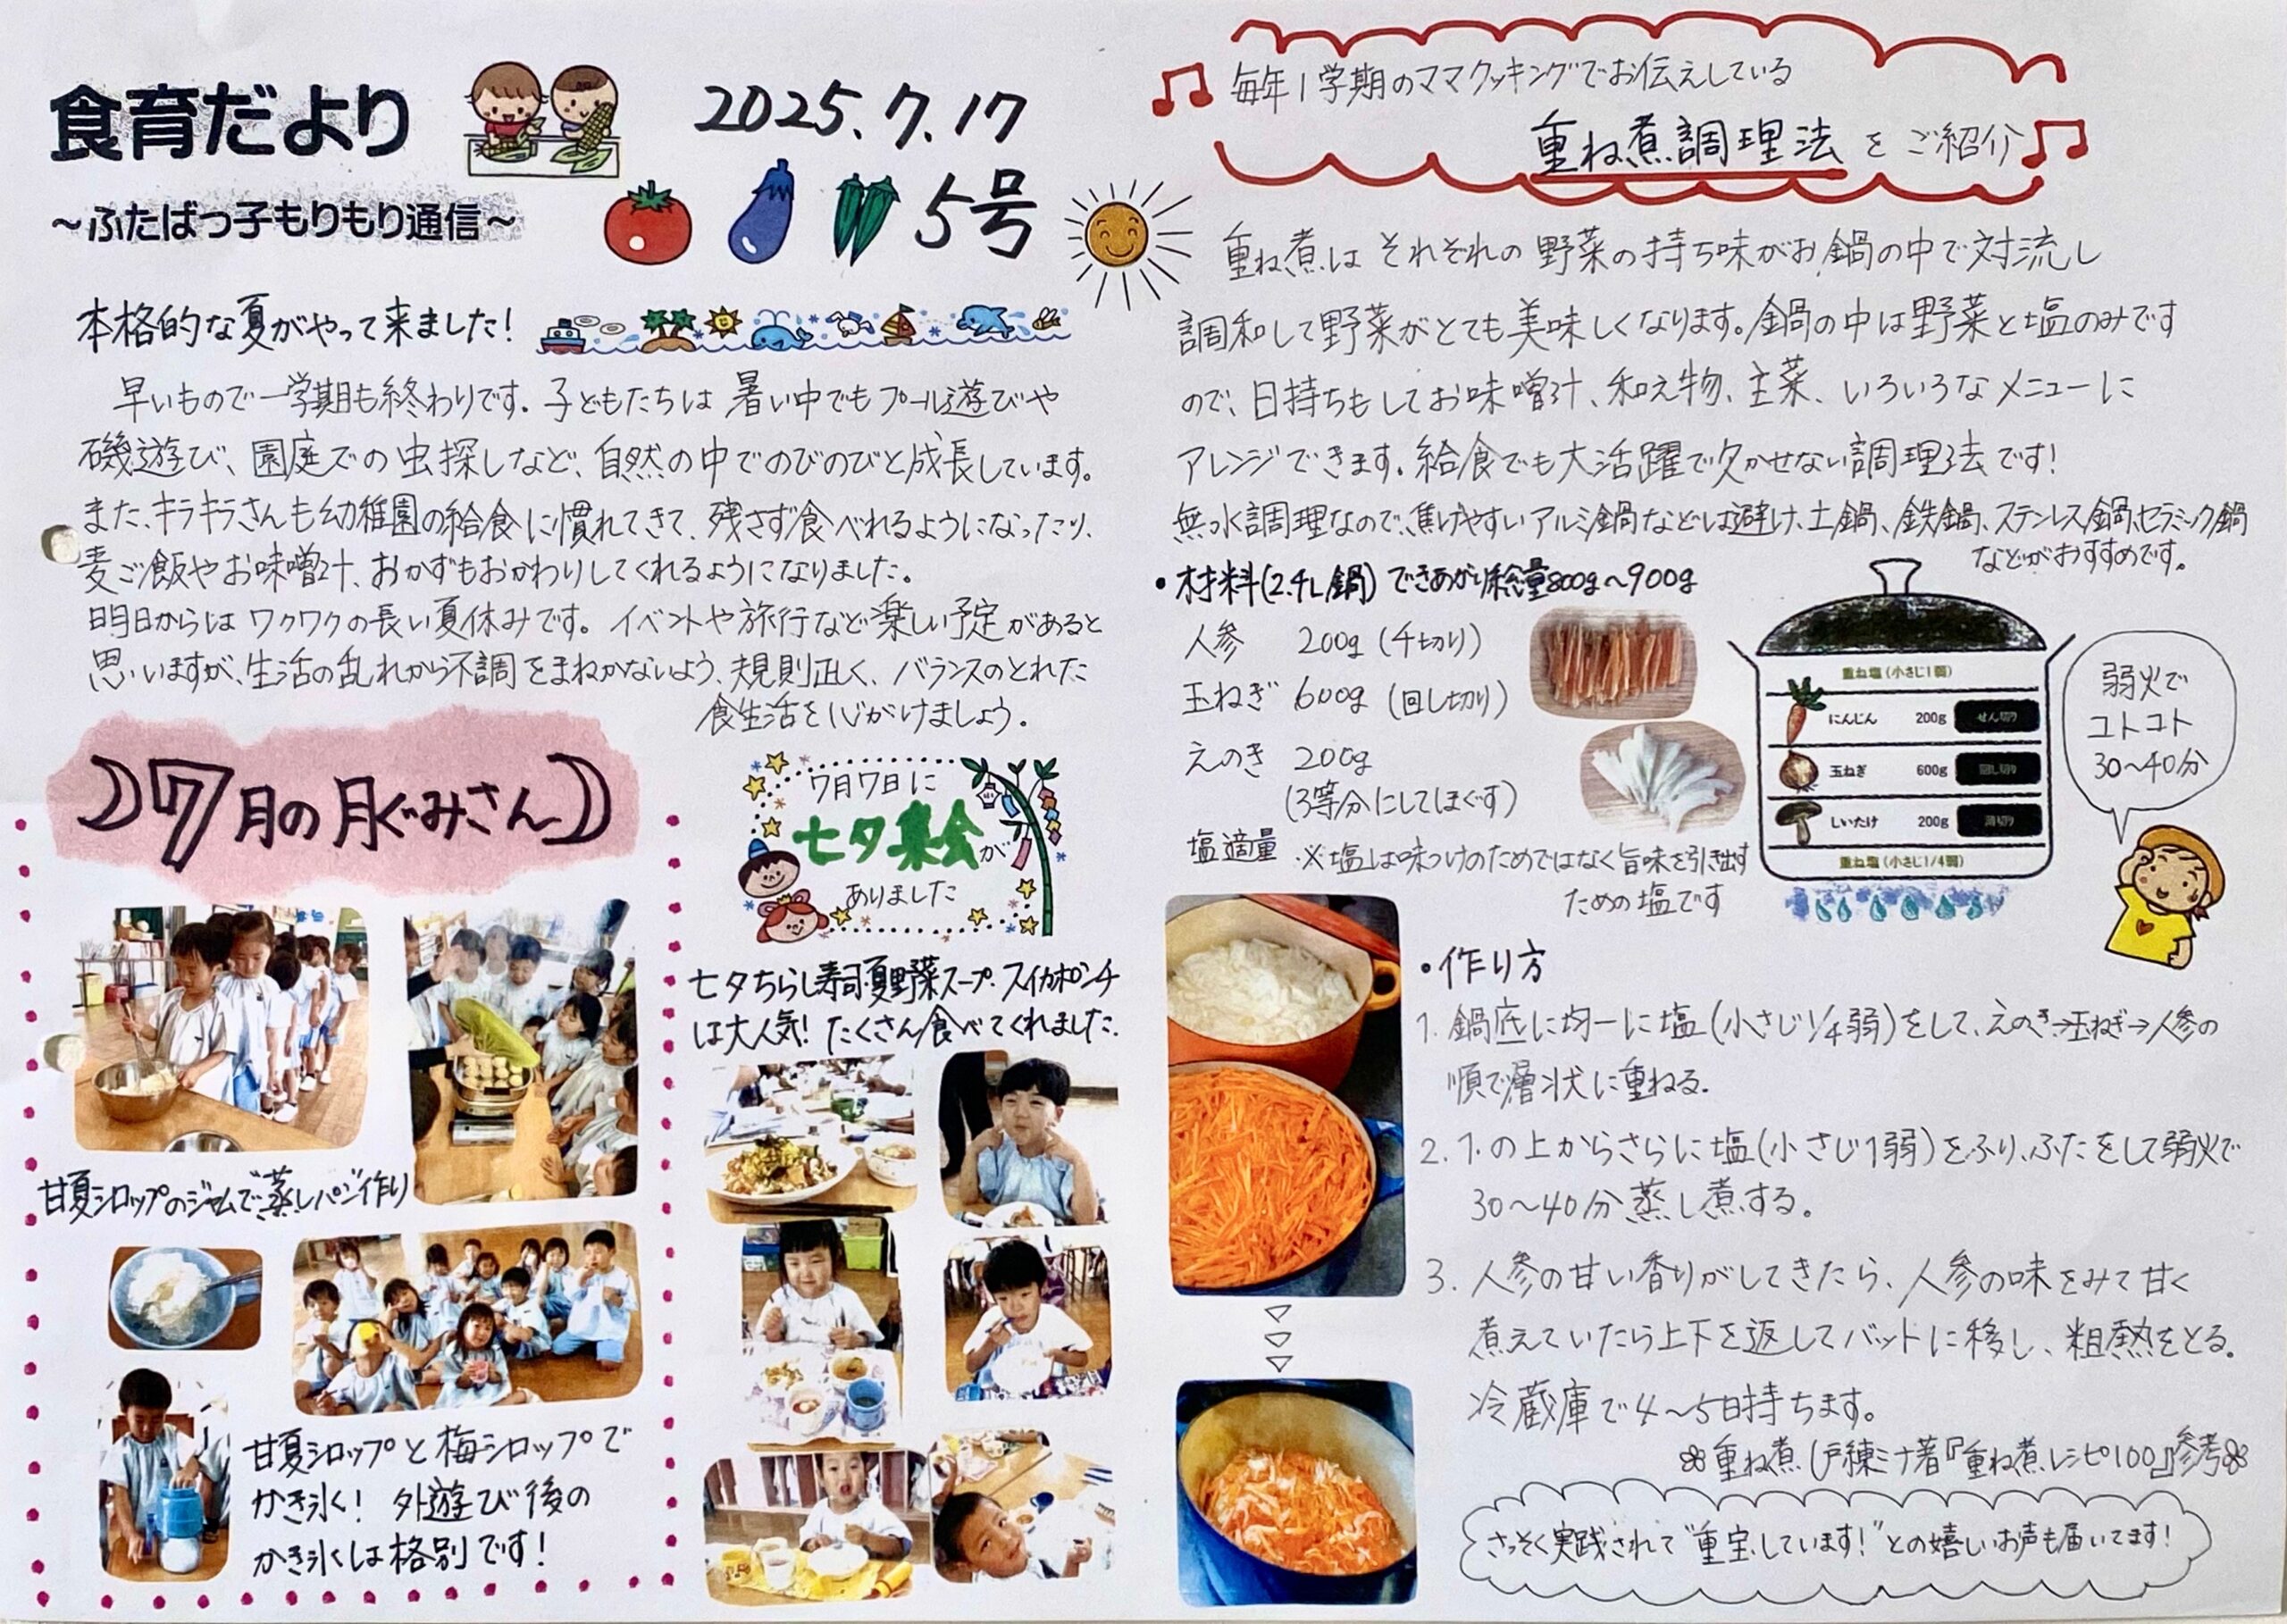 食育だより
2025.7.17
～ふたばっ子もりもり通信～
5号
本格的な夏がやって来ました！
早いもので一学期も終わりです。子どもたちは暑い中でもプール遊びや
磯遊び、園庭での虫探しなど、自然の中でのびのびと成長しています。
また、キラキラさんも幼稚園の給食に慣れてきて、残さず食べれるようになったり、
麦ご飯やお味噌汁、おかずもおかわりしてくれるようになりました。
明日からはワクワクの長い夏休みです。イベントや旅行など楽しい予定があると
思いますが、生活の乱れから不調をまねかないよう、規則正しく、バランスのとれた
食生活を心がけましょう。
7月の月ぐみさん
甘夏シロップのジャムで蒸しパン作り
甘夏シロップと梅シロップで
かき氷！ 外遊び後の
かき氷は格別です！
7月7日に
七夕集会が
ありました
七夕ちらし寿司・夏野菜スープ・スイカポンチ
は大人気！たくさん食べてくれました。
毎年1学期のママクッキングでお伝えしている
重ね煮調理法をご紹介
重ね煮はそれぞれの野菜の持ち味がお鍋の中で対流し
調和して野菜がとても美味しくなります。鍋の中は野菜と塩のみです
ので、日持ちもしてお味噌汁、和え物、主菜、いろいろなメニューに
アレンジできます。給食でも大活躍で欠かせない調理法です！
無水調理なので、焦げやすいアルミ鍋などは避け、土鍋、鉄鍋、ステンレス鍋、セラミック鍋
などがおすすめです。
・材料(2.4L鍋) できあがり総量800g～900g
人参 200g (千切り)
玉ねぎ 600g (回し切り)
えのき 200g
(3等分にしてほぐす)
塩適量 ※塩は味つけのためではなく旨味を引き出す
ための塩です
重ね塩(小さじ1弱)
にんじん 200g せん切り
玉ねぎ 600g 回し切り
しいたけ 200g 薄切り
重ね塩(小さじ1/4弱)
弱火で
コトコト
30～40分
・作り方
1. 鍋底に均一に塩(小さじ1/4弱)をして、えのき→玉ねぎ→人参の
順で層状に重ねる。
2. 1.の上からさらに塩(小さじ1弱)をふり、ふたをして弱火で
30～40分蒸し煮する。
3. 人参の甘い香りがしてきたら、人参の味をみて甘く
煮えていたら上下を返してバットに移し、粗熱をとる。
冷蔵庫で4～5日持ちます。
重ね煮 戸練ミナ著『重ね煮レシピ100』参考
さっそく実践されて“重宝しています！”との嬉しいお声も届いてます！